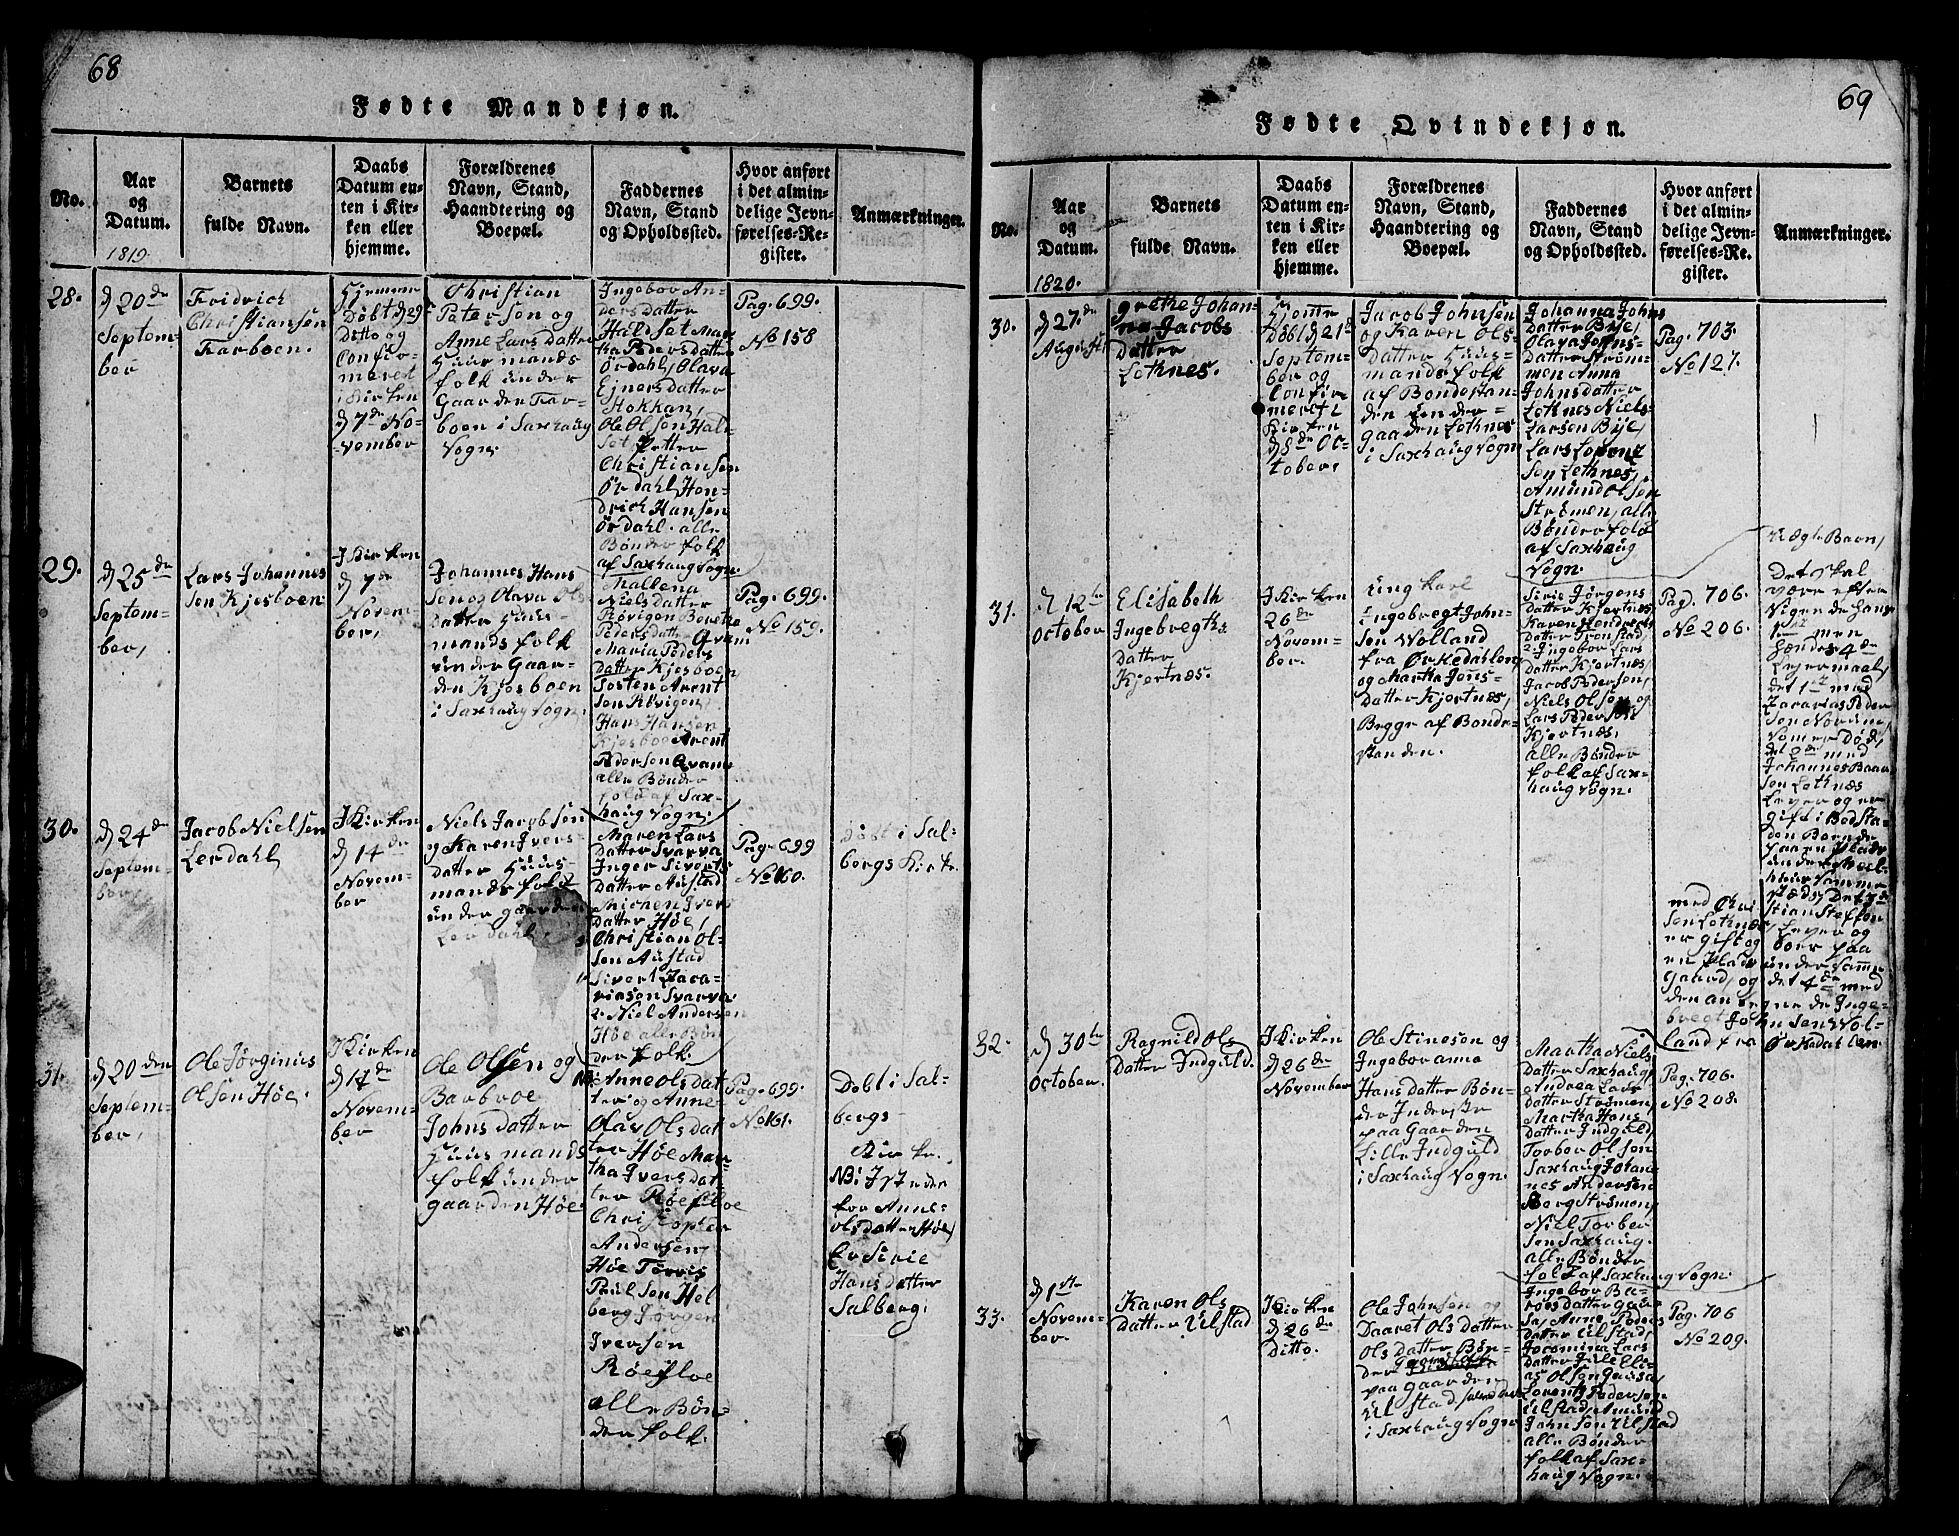 68
Fødte Mandkjøn.
No.
Aar
og
Datum.
1819.
Barnets
fulde Navn.
Daabs
Datum en-
ten i Kir-
ken eller
hjemme.
Forældrenes
Navn, Stand,
Haandtering og
Boepæl.
Faddernes
Navn, Stand
og Opholdssted.
Hvor anført
i det almin-
delige Jevn-
førelses-Re-
gister.
Anmærkninger.
28.
d 20de
Septem-
ber
Fridrich
Christiansen
Farboen.
Hjemme
Døbt d 29
Ditto og
Confir-
meret
i Kirken
d 7de No-
vember
Christian
Petersen og
Anne Lars Datter
Huusmands
folk under
Gaarden Far-
boen i Saxhaug
Sogn.
Ingebor An-
dersdatter
Haldset Mar-
tha Pedersdatter
Ördahl, Olava
Ejnersdatter
Hokkan,
Ole Olsen Hal-
set, Petter
Christiansen
Ördahl, Hen-
drich Hansen
Ördahl. alle
Bønderfolk
af Saxhaug Sogn.
Pag. 699.
No 158
29.
d 25de
Septem-
ber,
Lars Johannes
Sen Kjesboen
I Kirken
d 7de
Novem-
ber,
Johannes Hans
Sen og Olava Ols
Datter Huus-
mands folk
under Gaar-
den Kjesboen
i Saxhaug Sogn.
Mallena
Nielsdatter
Røvigen Berethe
Pedersdatter Qvam
Maria Peders
Datter Kjesboen
Tosten Arent
Sen Røvigen,
Hans Hansen
Kjesboe Arent
Pedersen Qvam
alle Bønder
folk af Sax-
haug Sogn.
Pag. 699.
No 159.
30.
d 24de
Septem-
ber,
Jacob Nielsen
Lerdahl
I Kirken
d 14de
Novem-
ber
Niels Jacobsen
og Karen Ivers-
datter Huus-
mandsfolk
under gaarden
Lerdahl.
Maren Lars
Datter Svarva
Inger Siverts
Datter Austad
Michen Ivers
Datter Höe,
Christian Ol-
Sen Austad
Sivert Zaca-
riasen Svarva
Niel Andersen
Höe alle Bøn-
der folk.
Pag. 699
No 160.
Døbt i Sal-
bergs Kirke.
31.
d 20den
Septem-
ber,
Ole Jørginius
Olsen Höe.
I Kirken
d 14de
Novem-
ber
Ole Olsen og
Barbroe
Johnsdatter
Huusmands
folk under
gaarden Höe
Anne Olsdat
ter og Anne
Olav Olsdat
ter Höe Mar-
tha Iversdat-
ter Røesloe
Christopher
Andersen,
Höe Torris
Paulsen Hel
berg Jørgen
Iversen
Röesloe
alle Bøn-
der folk.
Pag. 699.
No 161.
Døbt i Sal-
bergs
Kirke.
NB: I Stedet
for Anne
Olsdatter Höe
Er Sirie
Hansdatter
Salberg.
69
Fødte Qvindekjøn.
No.
Aar
og
Datum.
1820.
Barnets
fulde Navn.
Daabs
Datum en-
ten i Kir-
ken eller
hjemme.
Forældrenes
Navn, Stand,
Haandtering og
Boepæl.
Faddernes
Navn, Stand
og Opholdssted.
Hvor anført
i det almin-
delige Jevn-
førelses-Re-
gister.
Anmærkninger.
30.
d 27de
August
Grethe Johan-
na Jacobs
Datter
Letknes.
Hjemme
Døbt d 21de
Septem-
ber og
Confir-
meret i
Kirken
d 8de Oc-
tober,
Jacob Johnsen
og Karen Ols-
Datter Huus-
mands folk
af Bondestan-
den under
gaarden Letknes
i Saxhaug Sogn
Johanna Johns
Datter Bye,
Olava Johns-
Datter Strøm-
men Anna
Johnsdatter
Letknes Niels
Larsen Bye,
Lars Lorentz
Sen Letknes,
Amund Olsen
Strömen, alle
Bønder folk
af Saxhaug
Sogn.
Pag. 703.
No 127.
31.
d 12te
October
Elisabeth
Ingebregts
Datter
Kjertnes.
I Kirken
26de
Novem-
ber.
Ung karl
Ingebregt John-
Sen Wolland
fra Ørkedahlen,
og Martha Jens-
Datter Kjertnes,
Begge af Bonde-
standen.
Sirie Jørgens
Datter Kjertnes,
Karen Hendrichs
datter Tronstad
Ingebor Lars
datter Kjertnes,
Jacob Pedersen,
Niels Olsen og
Lars Pedersen
Kjertnes,
alle Bønder
folk af Sax-
haug Sogn.
Pag. 706.
No 206.
Uægte Barn,
Det skal
være efter
Sigende hans
1te men
hendes 4de
Lejermaal,
det 1te med
Zacarias Peder
Sen
Død,
det 2de med
Johannes
Sen Letknes
med
Sen Letknes
er gift og
under samme
gaard, og det 4de med
den angivne Inge-
bregt Johnsen Wol-
land fra Ørkedahlen.
32.
d 30te
October.
Ragnild Ols
Datter Indguld.
I Kirken
d 26de
November
Ole Stinesen og
Ingebor Anna
Hans Datter Bøn-
der
paa Gaarden
Lille Indguld
i Saxhaug Sogn.
Martha Niels
Datter Saxhaug,
Andrea Lars
datter Strømen,
Martha Hans
Datter Indguld,
Torber Olsen
Saxhaug, Johan-
nes Andersen
Berg Strömen,
Niel Torber
Sen Saxhaug.
alle Bønder
folk af Saxhaug Sogn.
Pag. 706.
No 208.
33.
d 1ste
Novem-
ber.
Karen Ols
Datter Ulstad
I Kirken
d 26de
Ditto.
Ole Johnsen og
Daaret Olsdatter
Olsdatter Bøn-
der
paa Gaarden
Ulstad
i Saxhaug Sogn
Ingebor
Anne Peders
datter Ulstad,
Jacomina Lars
datter Jule Eli-
as Olsen Gausa,
Lorentz Pedersen
Ulstad, Amund
Johnsen Ulstad
alle Bønder
folk af Sax-
haug Sogn.
Pag. 706
No 209.